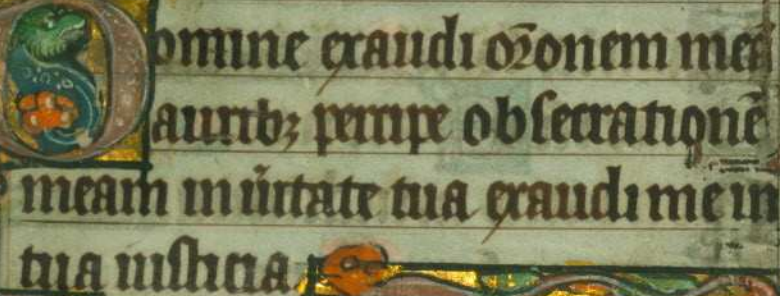 Domine exaudi or̃onem mea
auribꝫ percipe obsecrationẽ
meam in ũitate tua exaudi me in
tua iusticia.